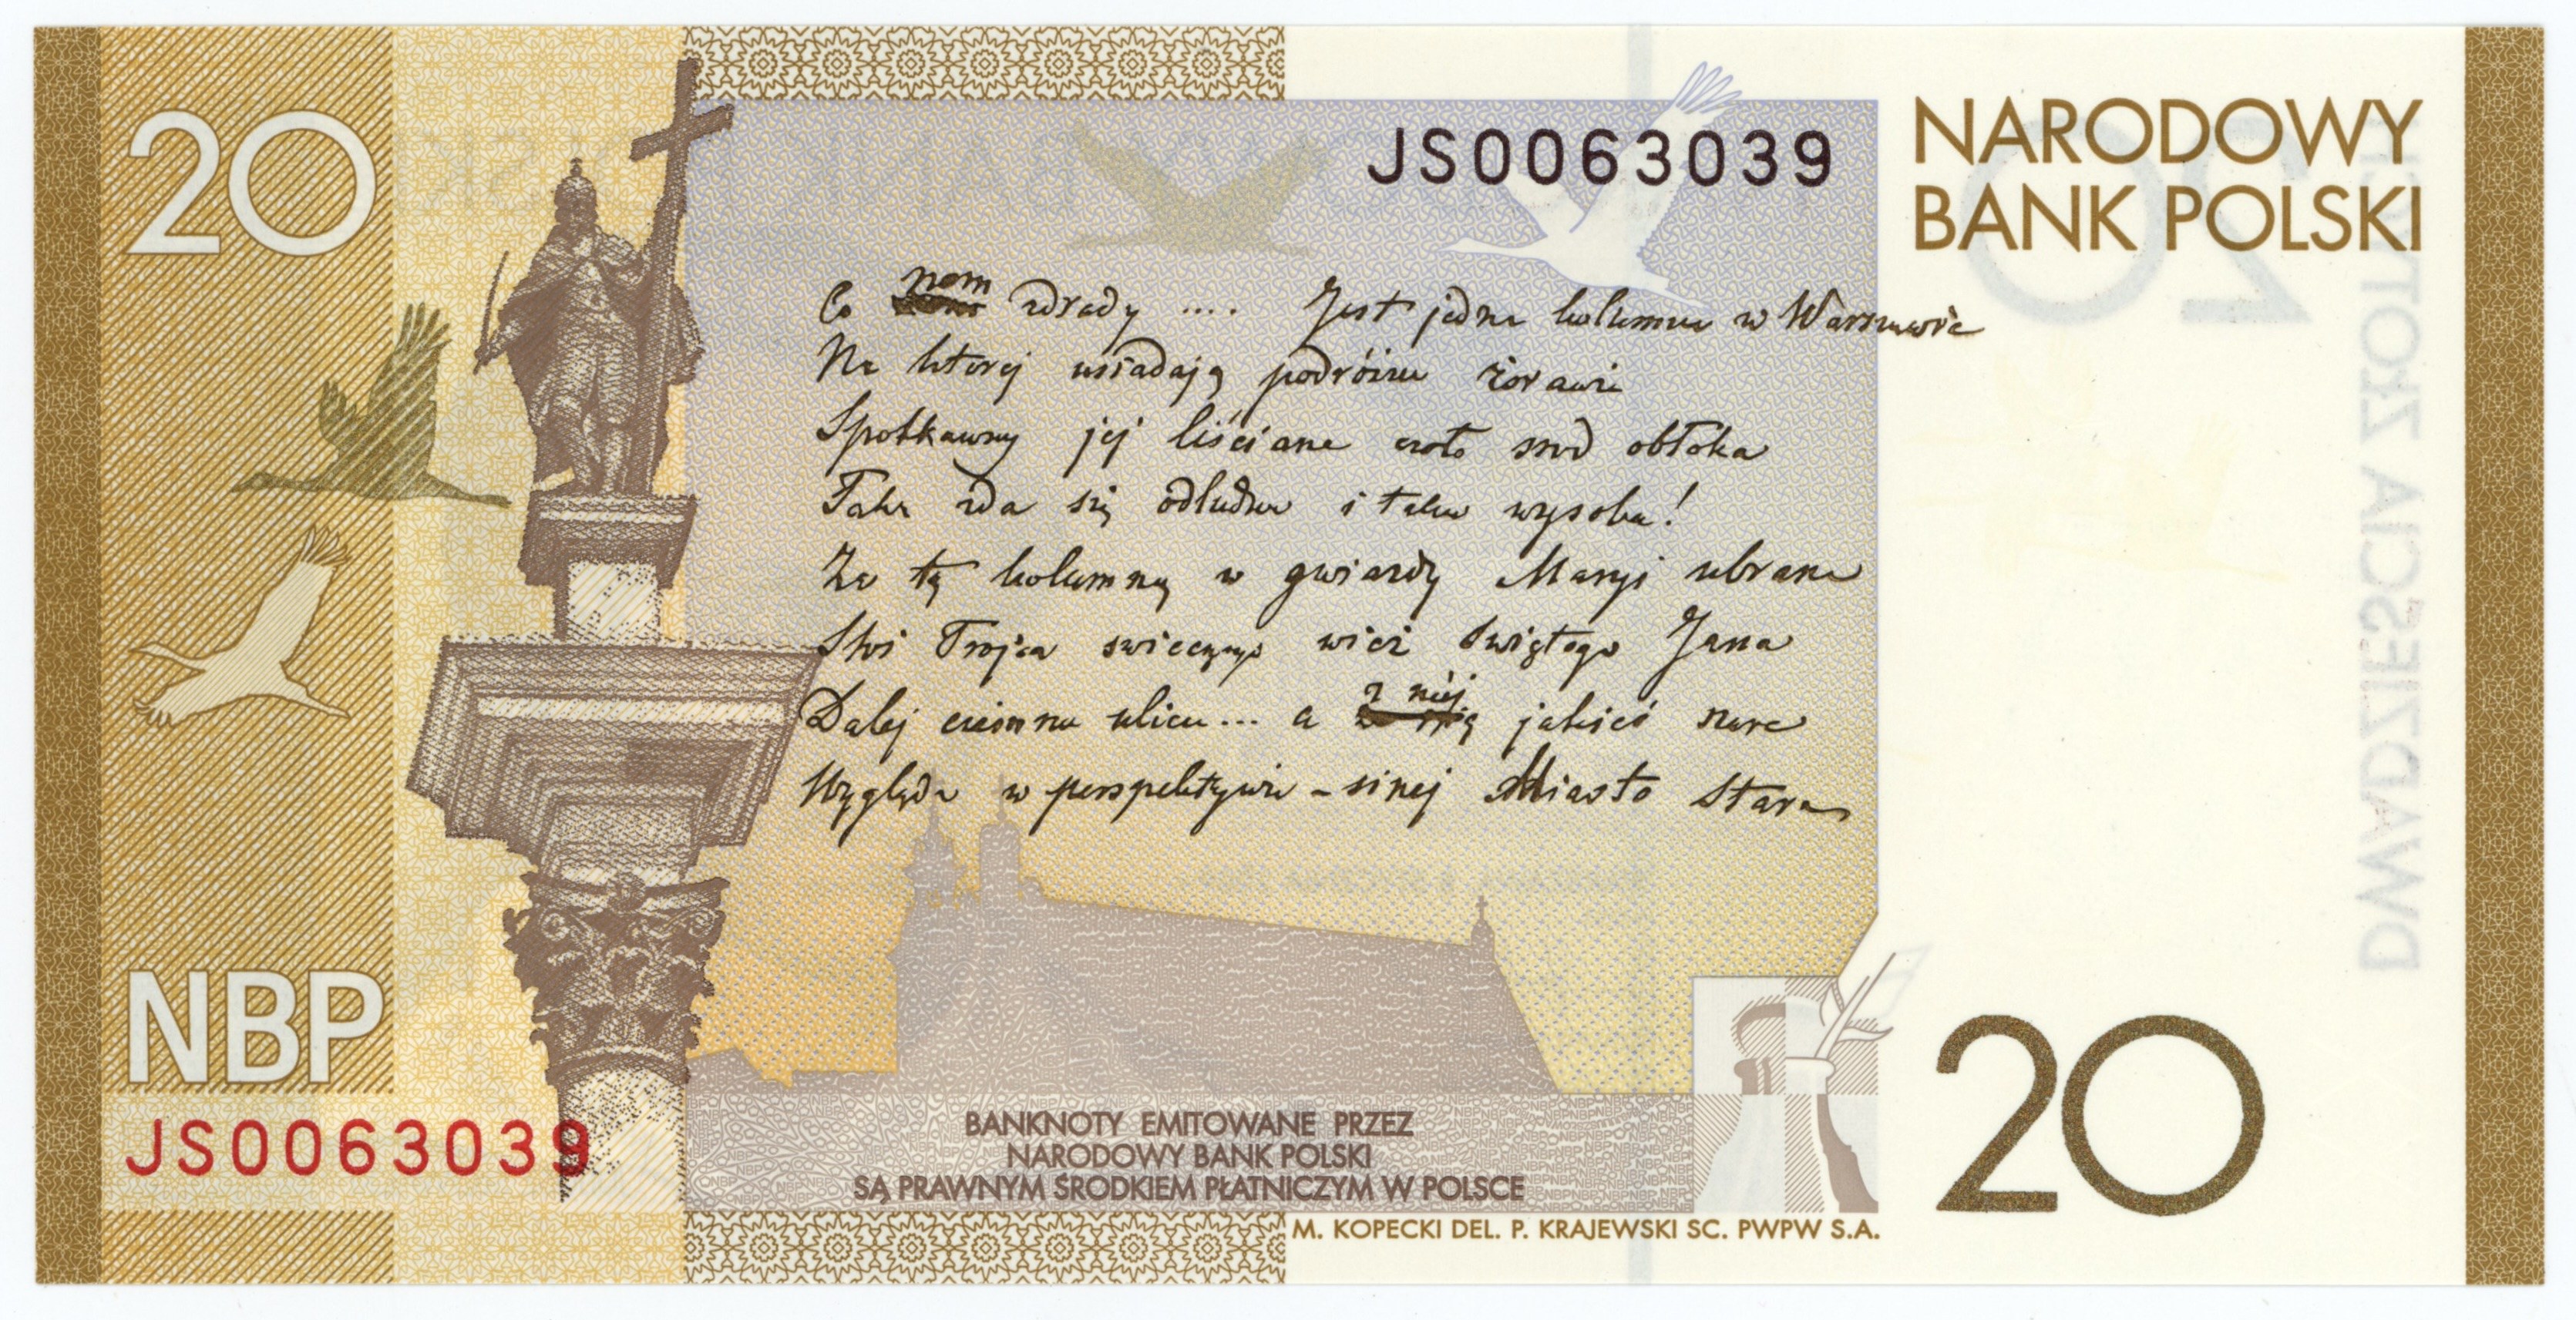 20
JS0063039
NARODOWY
BANK POLSKI
Co nam zdrady .... Jest jedna kolumna w Warszawie
Na ktorej usiadają podróżne żorawie
Spotkawszy jej liściane czoło srod obłoka
Taka zda się odludna i taka wysoka!
Za tą kolumną w gwiazdy Maryi ubrana
Stoi Trojca swiecących wież Swiętego Jana
Dalej ciemna ulica... a z niéj jakieś szare
Wygląda w perspektywie - sinej Miasto Stare
NBP
JS0063039
BANKNOTY EMITOWANE PRZEZ
NARODOWY BANK POLSKI
SĄ PRAWNYM ŚRODKIEM PŁATNICZYM W POLSCE
20
M. KOPECKI DEL. P. KRAJEWSKI SC. PWPW S.A.